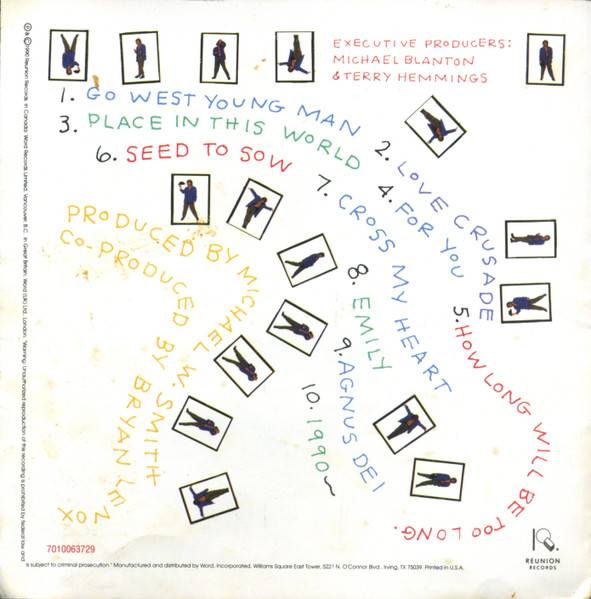 EXECUTIVE PRODUCERS:
MICHAEL BLANTON
& TERRY HEMMINGS
1. GO WEST YOUNG MAN
2. LOVE CRUSADE
3. PLACE IN THIS WORLD
4. FOR YOU
5. HOW LONG WILL BE TOO LONG.
6. SEED TO SOW
7. CROSS MY HEART
8. EMILY
9. AGNUS DEI
10. 1990~
PRODUCED BY MICHAEL W. SMITH
CO-PRODUCED BY BRYAN LENOX
7010063729
REUNION
RECORDS
℗ & © 1990 Reunion Records. In Canada: Word Records Limited, Vancouver, B.C. In Great Britain, Word (UK) Ltd., London. "Warning: Unauthorized reproduction of this recording is prohibited by federal law and
is subject to criminal prosecution." Manufactured and distributed by Word, Incorporated, Williams Square East Tower, 5221 N. O'Connor Blvd., Irving, TX 75039. Printed in U.S.A.